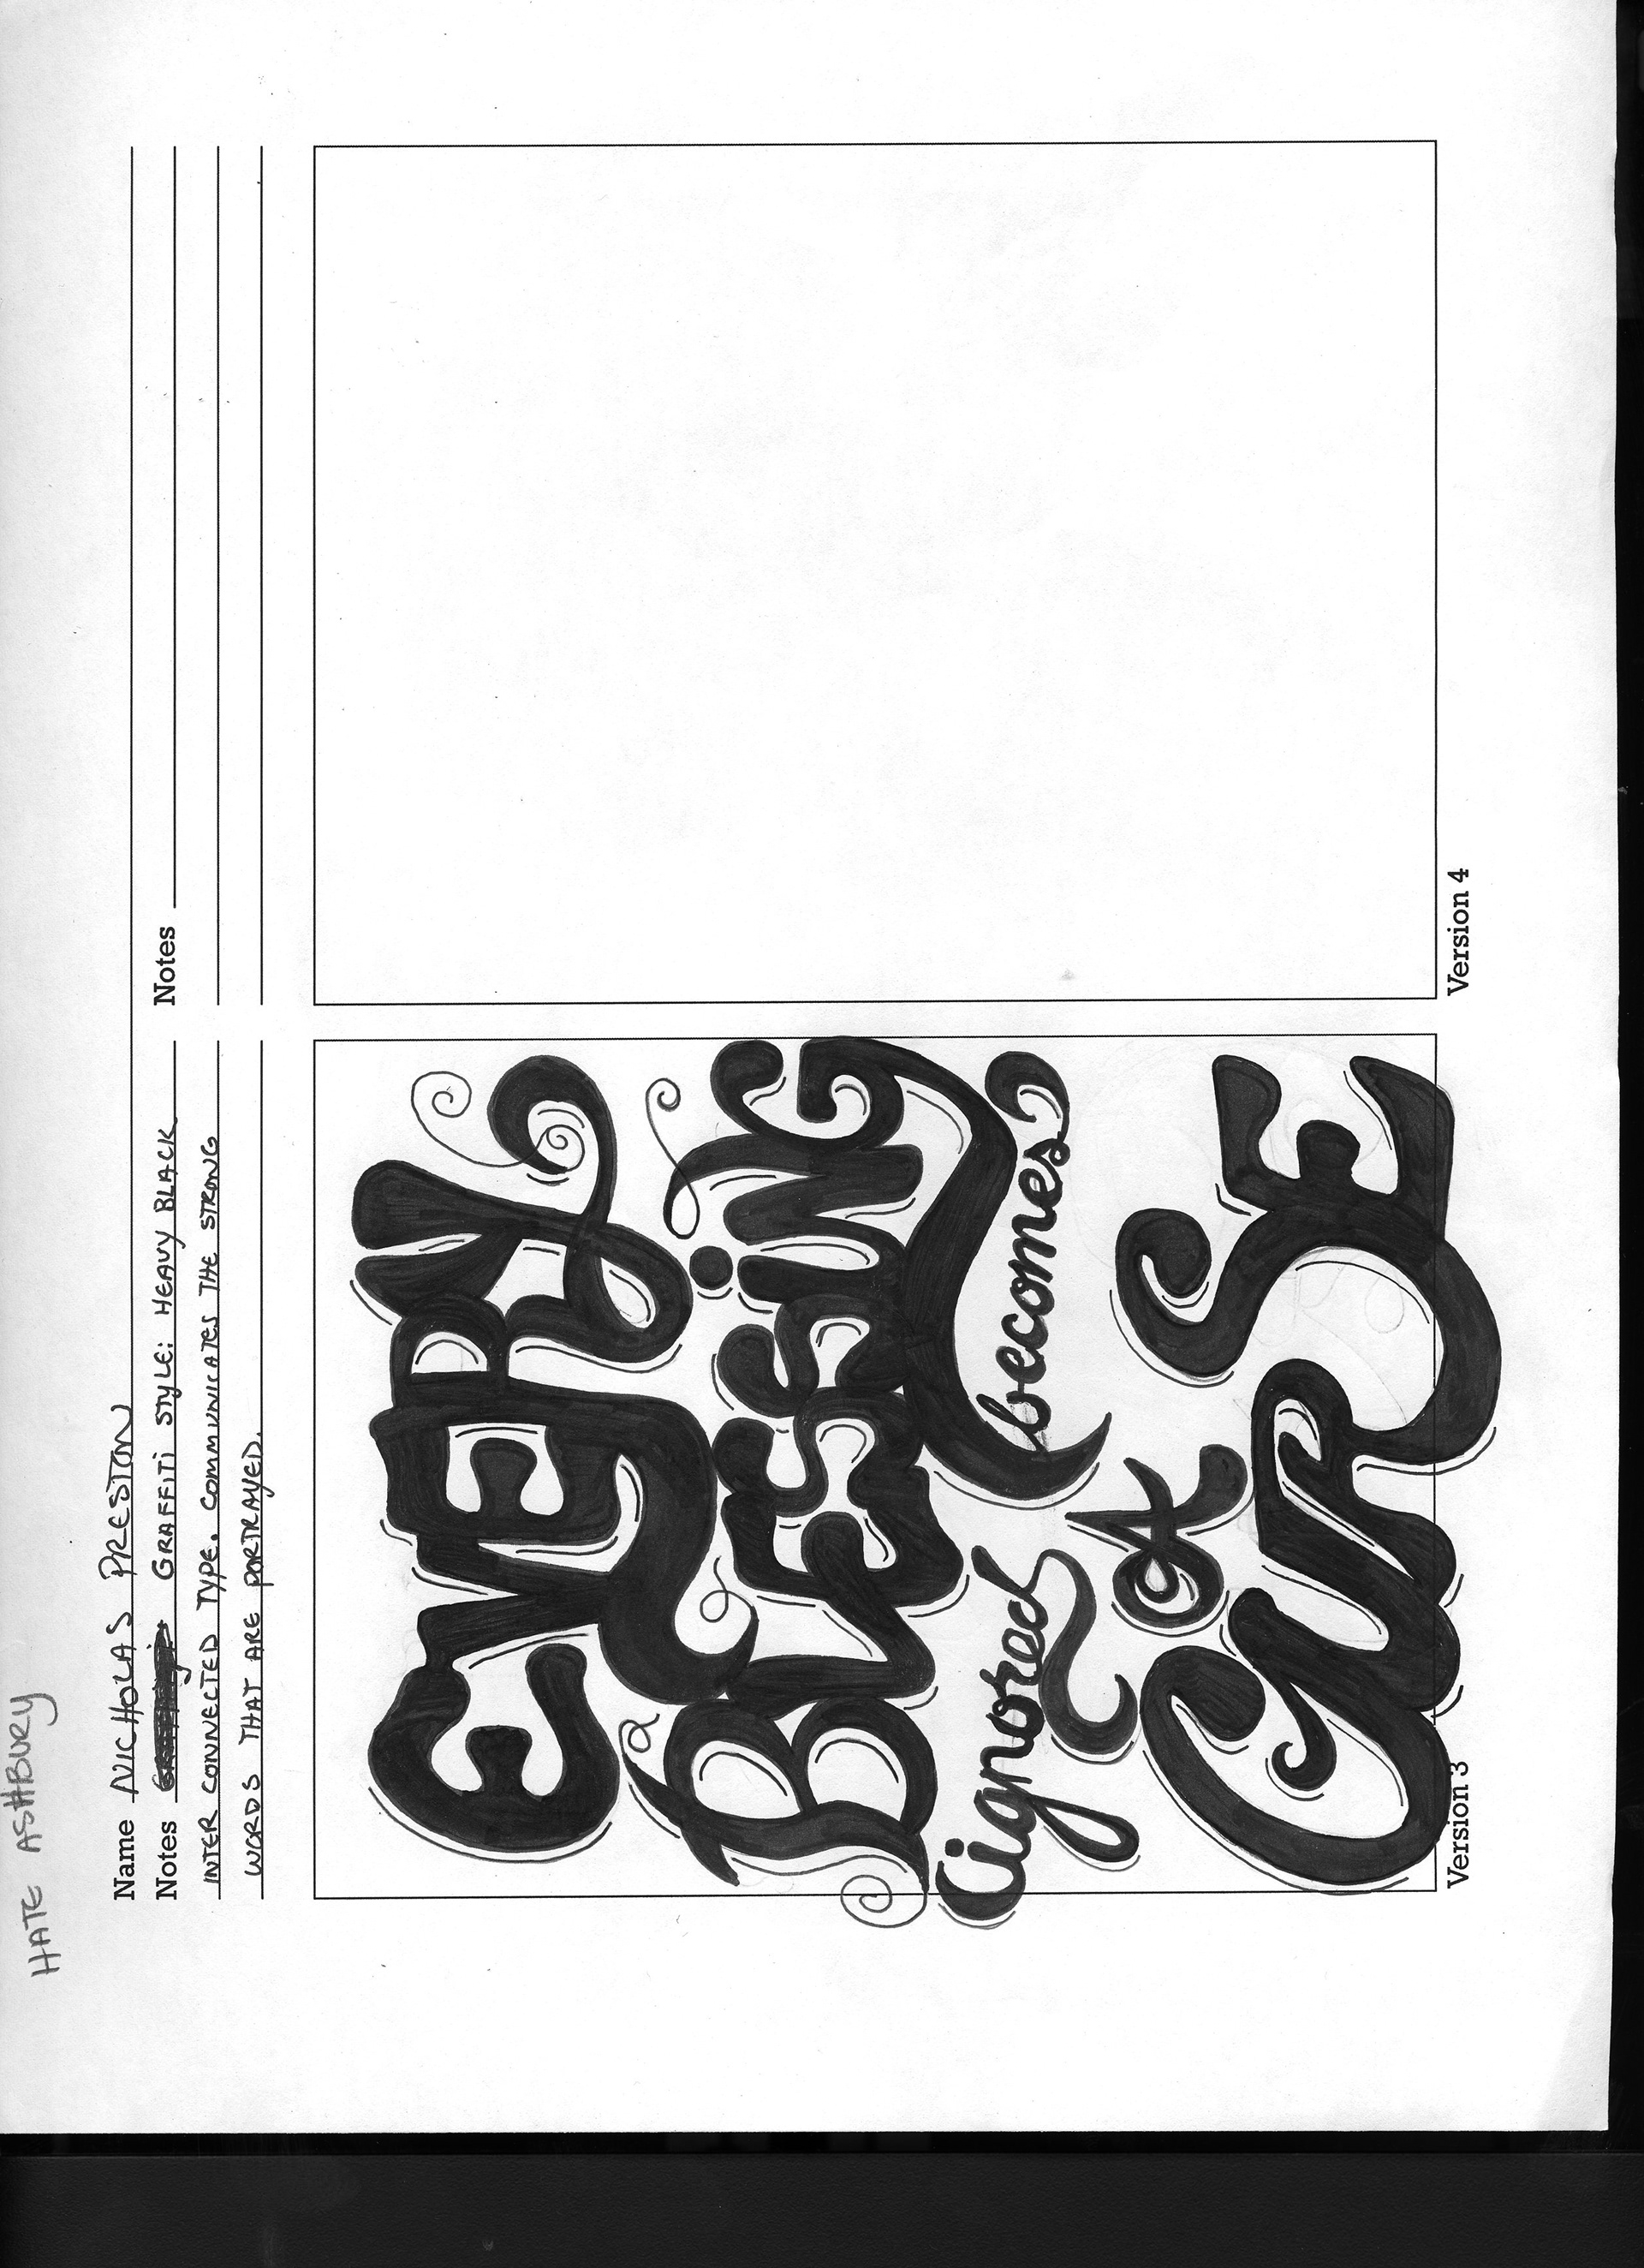 HATE ASHBURY
Name NICHOLAS PRESTON
Notes GRAFFITI STYLE: HEAVY BLACK
INTER CONNECTED TYPE. COMMUNICATES THE STRONG
WORDS THAT ARE PORTRAYED.
Notes
EVERY
BLESSING
ignored becomes
A
CURSE
Version 3
Version 4